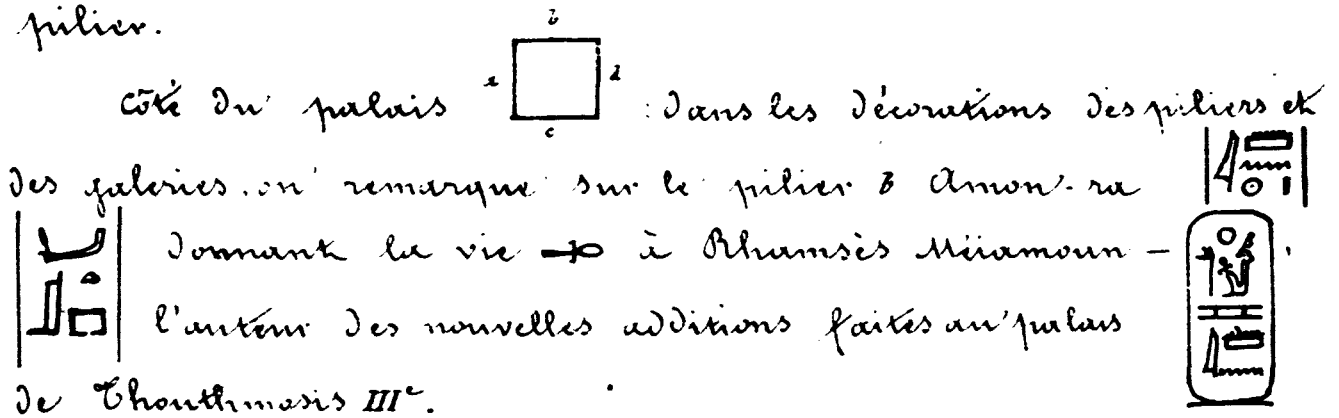 pilier.
b
Côté du palais a d : dans les décorations des piliers et
c
des galeries. on remarque sur le pilier b Amon-ra
donnant la vie à Rhamsès Méiamoun –
l'auteur des nouvelles additions faites au palais
de Thouthmosis IIIe.